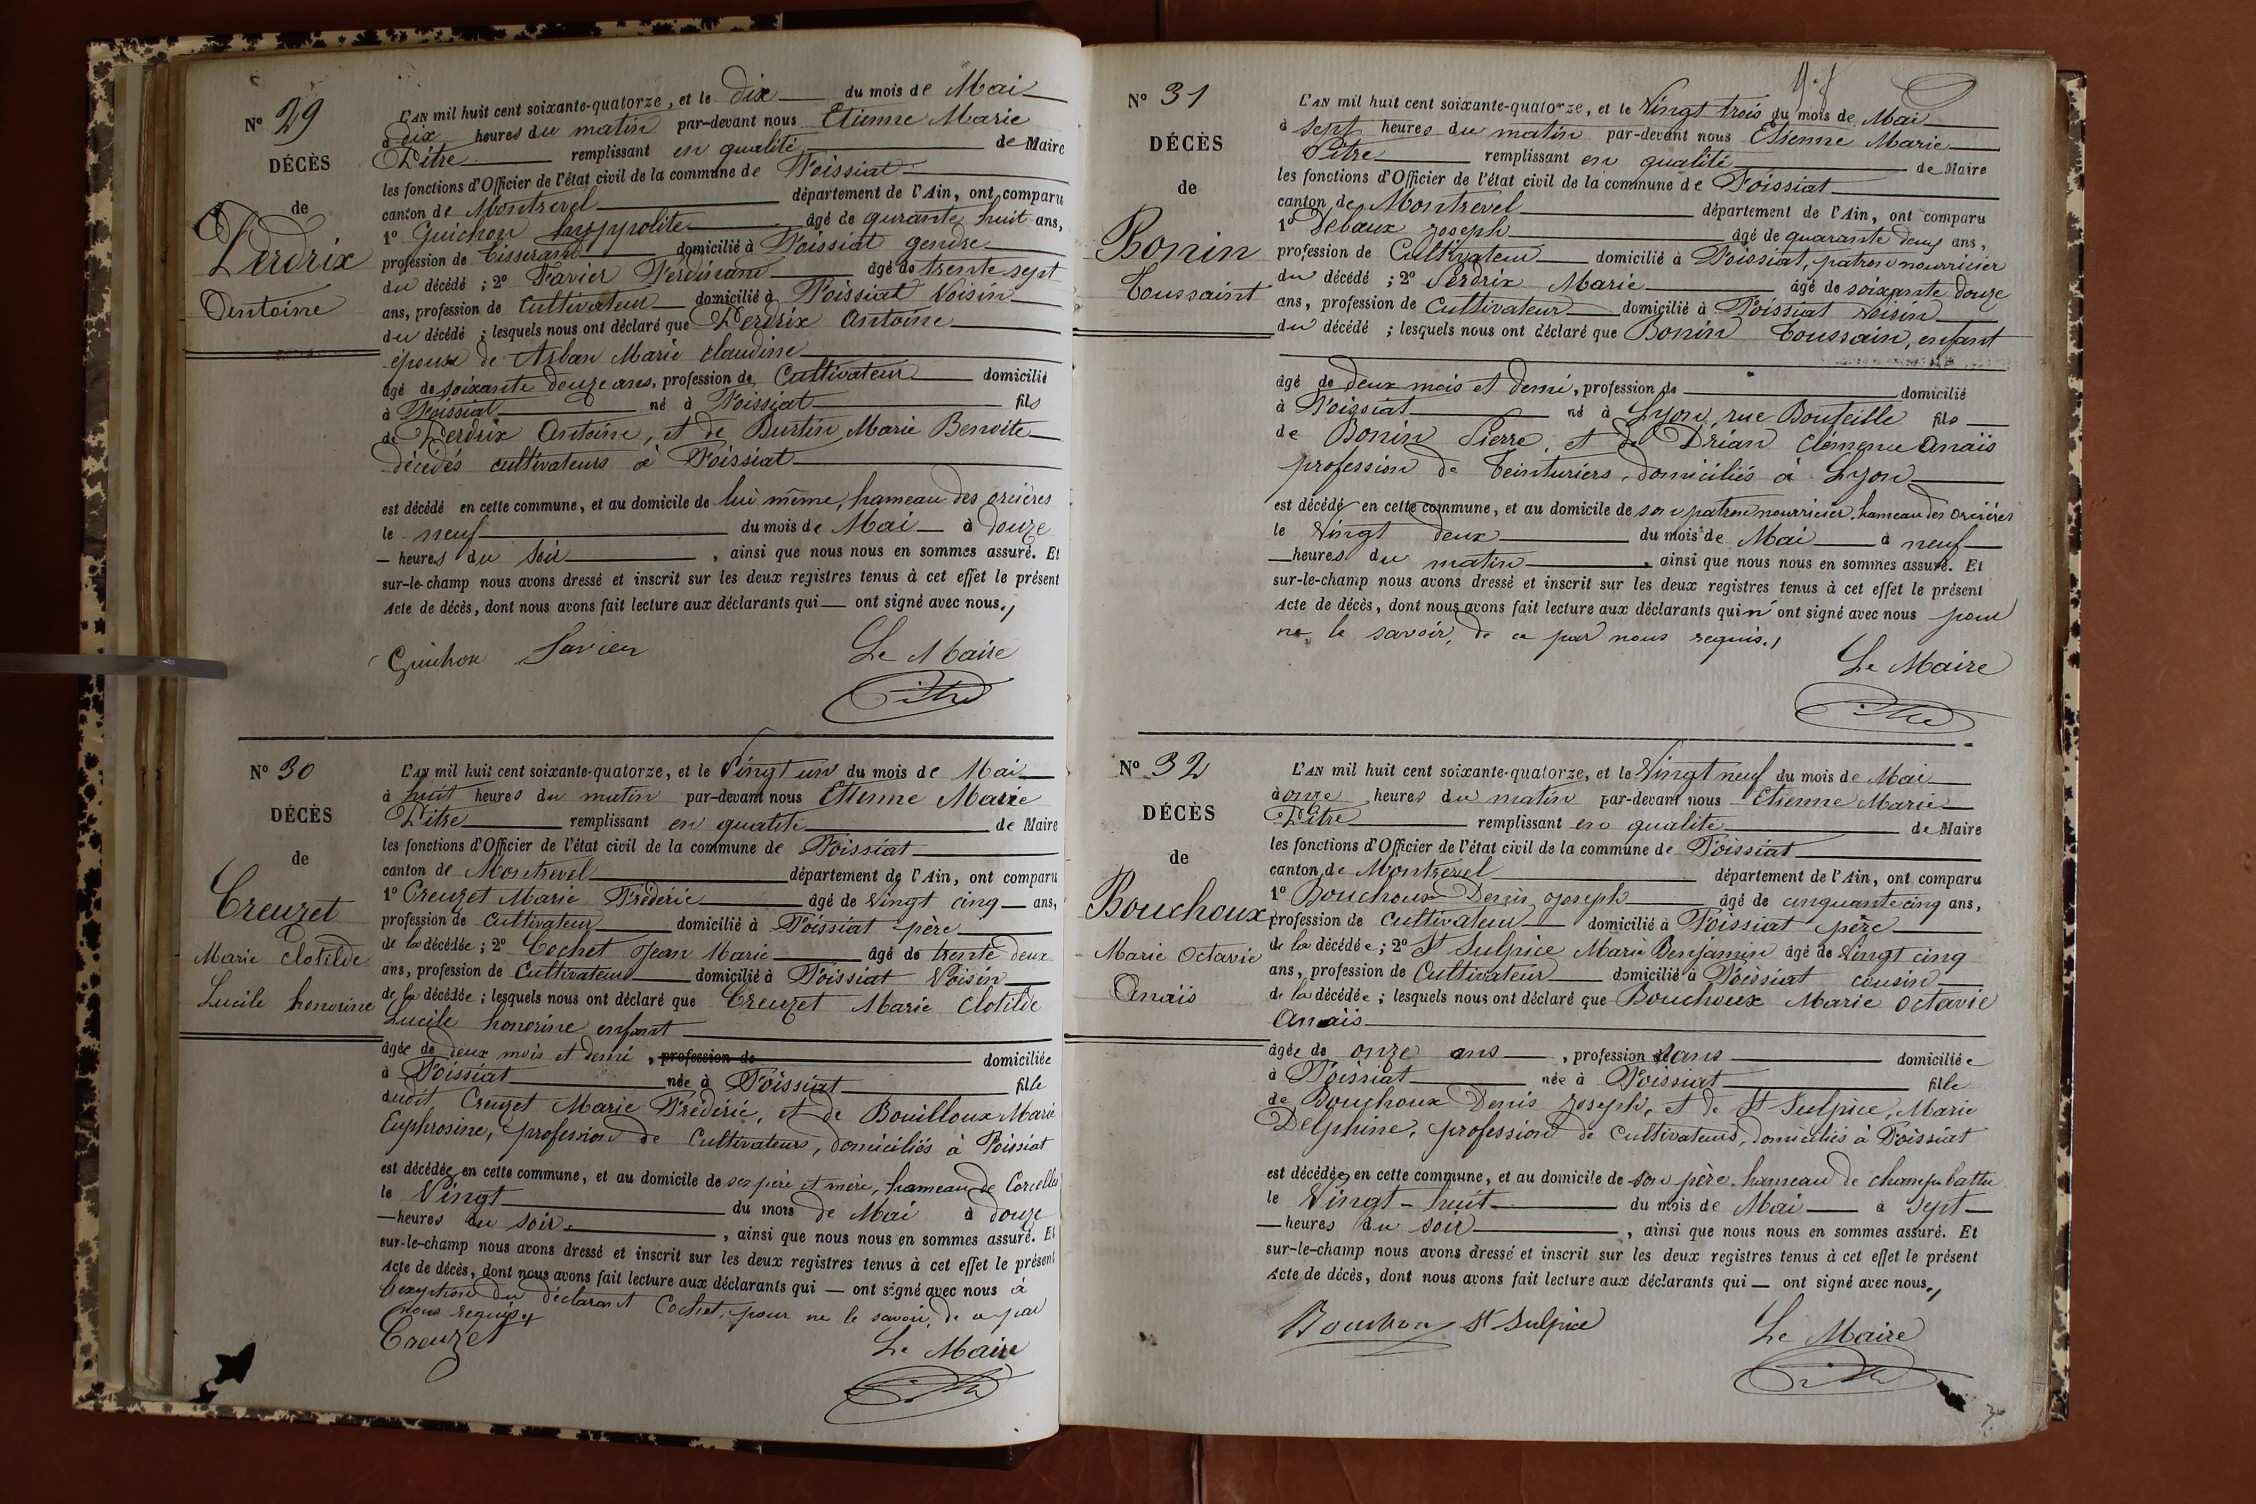 Nº 29
DÉCÈS
de
Perdrix
Antoine
L'AN mil huit cent soixante-quatorze, et le dix du mois de Mai
à dix heures du matin par-devant nous Etienne Marie
Pitre remplissant en qualité de Maire
les fonctions d'Officier de l'état civil de la commune de Foissiat
canton de Montrevel département de l'Ain, ont comparu
1º Guichon hyppolite âgé de qurante huit ans,
profession de tisserand domicilié à Foissiat gendre
du décédé ; 2º Favier Ferdinand âgé de trente sept
ans, profession de cultivateur domicilié à Foissiat Voisin
du décédé ; lesquels nous ont déclaré que Perdrix Antoine
époux de Arban Marie claudine
âgé de soixante douze ans, profession de Cultivateur domicilié
à Foissiat né à Foissiat fils
de Perdrix Antoine, et de Burtin Marie Benoite
décédés cultivateurs à Foissiat
est décédé en cette commune, et au domicile de lui même, hameau des orcières
le neuf du mois de Mai à douze
heures du soir, ainsi que nous nous en sommes assuré. Et
sur-le-champ nous avons dressé et inscrit sur les deux registres tenus à cet effet le présent
Acte de décès, dont nous avons fait lecture aux déclarants qui ont signé avec nous.
Guichon Favier Le Maire
Pitre
Nº 30
DÉCÈS
de
Creuzet
Marie Clotilde
Lucile honorine
L'AN mil huit cent soixante-quatorze, et le Vingt un du mois de Mai
à huit heures du matin par-devant nous Etienne Marie
Pitre remplissant en qualité de Maire
les fonctions d'Officier de l'état civil de la commune de Foissiat
canton de Montrevel département de l'Ain, ont comparu
1º Creuzet Marie Frédéric âgé de vingt cinq ans,
profession de cultivateur domicilié à Foissiat père
de la décédée ; 2º Cochet Jean Marie âgé de trente deux
ans, profession de Cultivateur domicilié à Foissiat Voisin
de la décédée ; lesquels nous ont déclaré que Creuzet Marie Clotilde
Lucile honorine enfant
âgée de deux mois et demi, profession de domiciliée
à Foissiat née à Foissiat fille
dudit Creuzet Marie Frédéric, et de Bouilloux Marie
Euphrosine, profession de Cultivateurs, domiciliés à Foissiat
est décédée en cette commune, et au domicile de ses père et mère, hameau de Corcelles
le Vingt du mois de Mai à douze
heures du soir, ainsi que nous nous en sommes assuré. Et
sur-le-champ nous avons dressé et inscrit sur les deux registres tenus à cet effet le présent
Acte de décès, dont nous avons fait lecture aux déclarants qui ont signé avec nous à
l'exception du déclarant Cochet, pour ne le savoir, de ce par
nous requis
Creuzet Le Maire
Pitre
Nº 31
DÉCÈS
de
Bonin
Toussaint
L'AN mil huit cent soixante-quatorze, et le Vingt trois du mois de Mai
à sept heures du matin par-devant nous Etienne Marie
Pitre remplissant en qualité de Maire
les fonctions d'Officier de l'état civil de la commune de Foissiat
canton de Montrevel département de l'Ain, ont comparu
1º Debœux Joseph âgé de quarante deux ans,
profession de Cultivateur domicilié à Foissiat, patron nourricier
du décédé ; 2º Perdrix Marie âgé de soixante douze
ans, profession de Cultivateur domicilié à Foissiat voisin
du décédé ; lesquels nous ont déclaré que Bonin Toussain, enfant
âgé de deux mois et demi, profession de domicilié
à Foissiat né à Lyon, rue Bouteille fils
de Bonin Pierre, et de Drian Clémence Anaïs
profession de teinturiers, domiciliés à Lyon
est décédé en cette commune, et au domicile de son patron nourricier, hameau des orcières
le Vingt deux du mois de Mai à neuf
heures du matin, ainsi que nous nous en sommes assuré. Et
sur-le-champ nous avons dressé et inscrit sur les deux registres tenus à cet effet le présent
Acte de décès, dont nous avons fait lecture aux déclarants qui n'ont signé avec nous pour
ne le savoir, de ce par nous requis.
Le Maire
Pitre
Nº 32
DÉCÈS
de
Bouchoux
Marie Octavie
Anaïs
L'AN mil huit cent soixante-quatorze, et le Vingt neuf du mois de Mai
à onze heures du matin par-devant nous Etienne Marie
Pitre remplissant en qualité de Maire
les fonctions d'Officier de l'état civil de la commune de Foissiat
canton de Montrevel département de l'Ain, ont comparu
1º Bouchoux Denis Joseph âgé de cinquante cinq ans,
profession de cultivateur domicilié à Foissiat père
de la décédée ; 2º St Sulpice Marie Benjamin âgé de vingt cinq
ans, profession de Cultivateur domicilié à Foissiat cousin
de la décédée ; lesquels nous ont déclaré que Bouchoux Marie Octavie
Anaïs
âgée de onze ans, profession sans domiciliée
à Foissiat née à Foissiat fille
de Bouchoux Denis Joseph, et de St Sulpice, Marie
Delphine, profession de Cultivateurs, domiciliés à Foissiat
est décédée en cette commune, et au domicile de son père hameau de champ battu
le Vingt-huit du mois de Mai à sept
heures du soir, ainsi que nous nous en sommes assuré. Et
sur-le-champ nous avons dressé et inscrit sur les deux registres tenus à cet effet le présent
Acte de décès, dont nous avons fait lecture aux déclarants qui ont signé avec nous.
St Sulpice Le Maire
Pitre